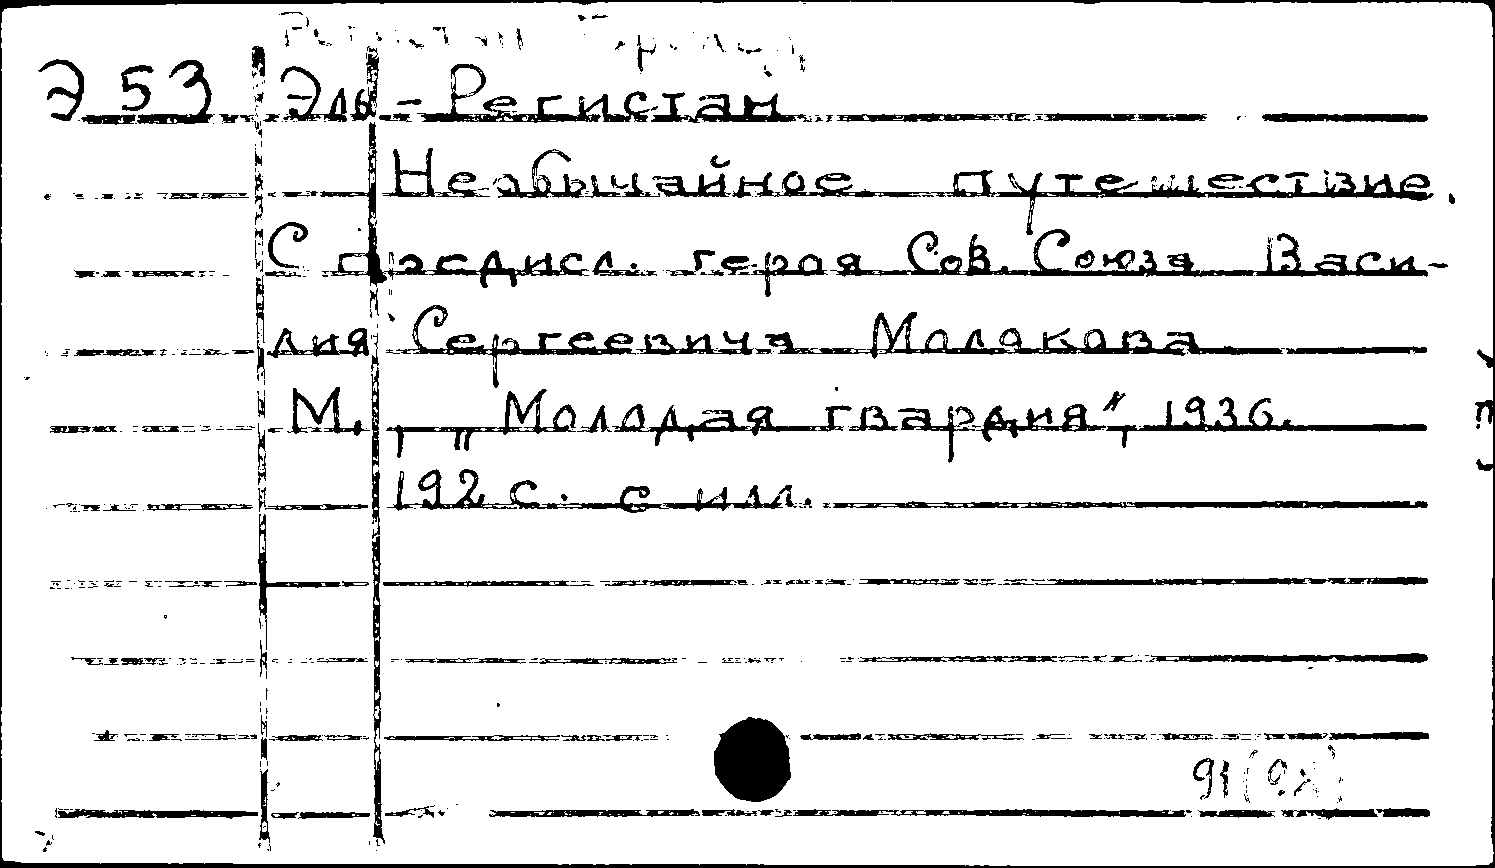 Э 53 Эль-Регистан
Необычайное путешествие.
С предисл. героя Сов. Союза Васи-
лия Сергеевича Молокова
М., „Молодая гвардия", 1936.
192 с. с илл.